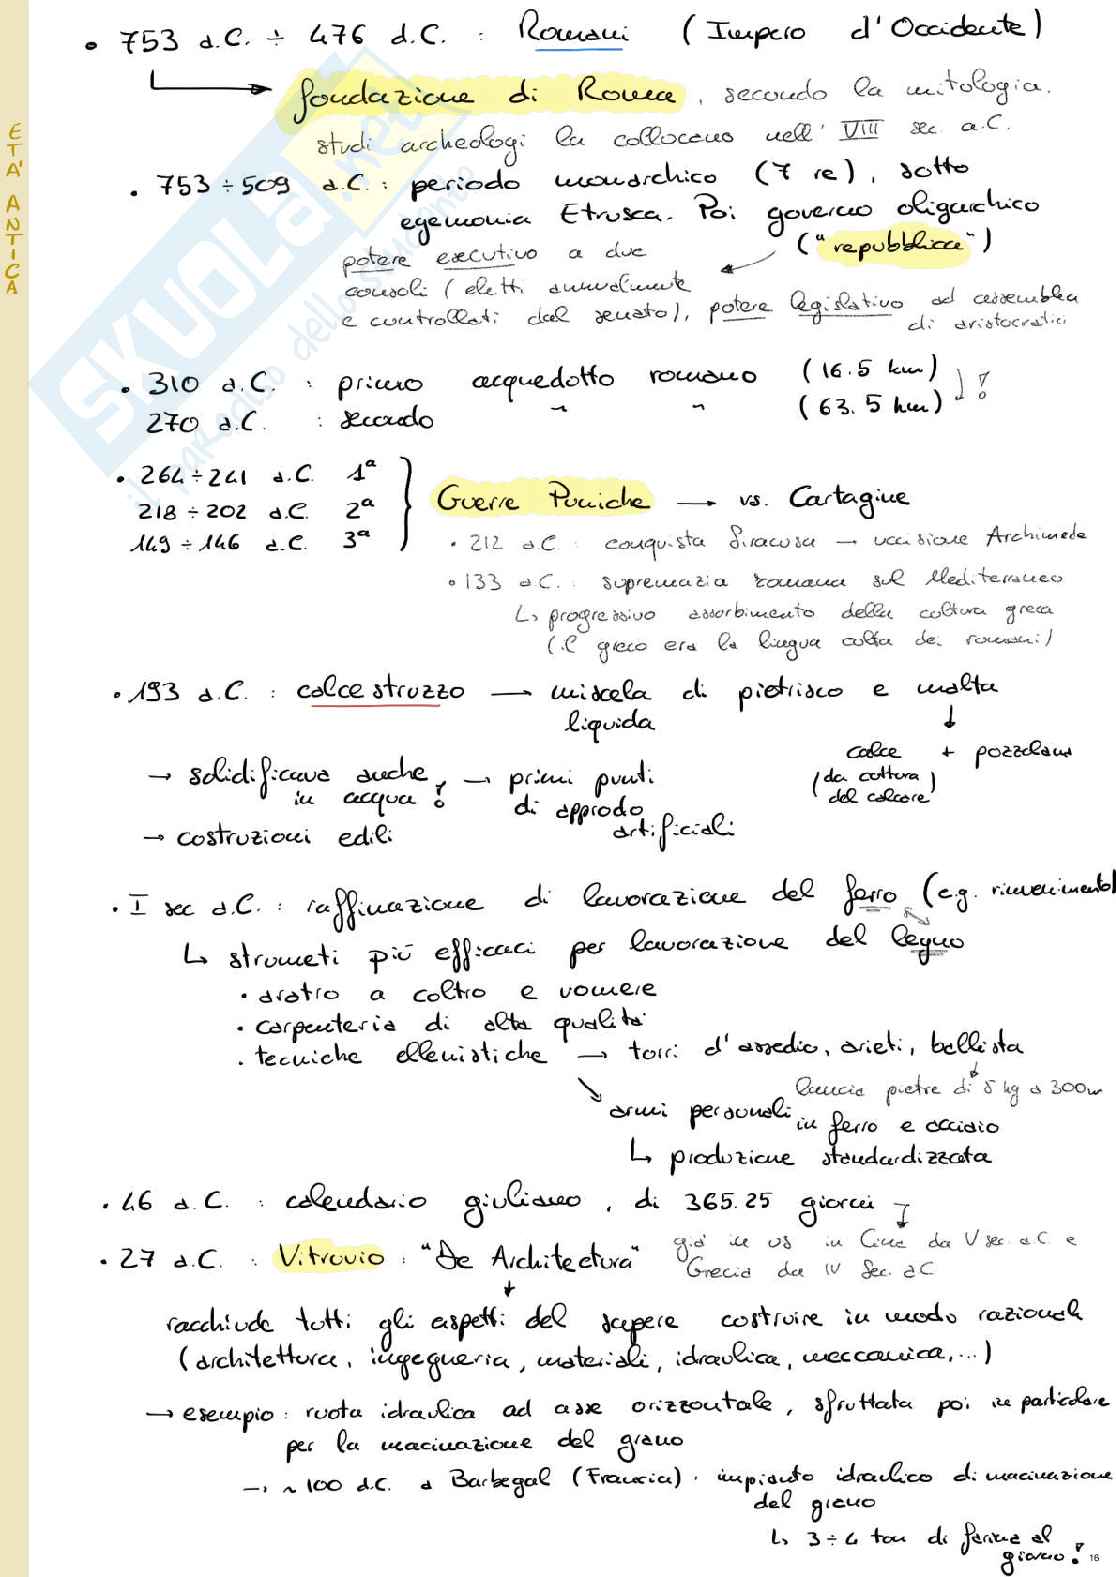 ETA' ANTICA
• 753 a.C. ÷ 476 d.C. : Romani (Impero d'Occidente)
fondazione di Roma, secondo la mitologia.
studi archeologi la collocano nell' VIII sec. a.C.
• 753÷509 a.C. : periodo monarchico (7 re), sotto
egemonia Etrusca. Poi governo oligarchico
("repubblica")
potere esecutivo a due
consoli (eletti annualmente
e controllati dal senato), potere legislativo ad assemblea
di aristocratici
• 310 a.C. : primo acquedotto romano (16.5 km)
270 a.C. : secondo " " (63.5 km) !
• 264÷241 a.C. 1ª
218÷202 a.C. 2ª
149÷146 a.C. 3ª
Guerre Puniche → vs. Cartagine
• 212 a.C. : conquista Siracusa → uccisione Archimede
• 133 a.C. : supremazia romana sul Mediterraneo
↳ progressivo assorbimento della cultura greca
(il greco era la lingua colta dei romani)
• 193 a.C. : calcestruzzo → miscela di pietrisco e malta
liquida
calce + pozzolana
(da cottura
del calcare)
→ solidificava anche
in acqua! → primi punti
di approdo
artificiali
→ costruzioni edili
• I sec a.C. : raffinazione di lavorazione del ferro (e.g. rinvenimento)
↳ strumeti più efficaci per lavorazione del legno
• aratro a coltro e vomere
• carpenteria di alta qualità
• tecniche ellenistiche → torri d'assedio, arieti, ballista
lancia pietre di 5 kg a 300m
armi personali in ferro e acciaio
↳ produzione standardizzata
• 46 a.C. : calendario giuliano, di 365.25 giorni
già in us in Cina da V sec. a.C. e
Grecia da IV Sec. a.C
• 27 a.C. : Vitruvio : "De Architectura"
racchiude tutti gli aspetti del sapere costruire in modo razionale
(architettura, ingegneria, materiali, idraulica, meccanica,...)
→ esempio : ruota idraulica ad asse orizzontale, sfruttata poi in particolare
per la macinazione del grano
→ ~100 d.C. a Barbegal (Francia). impianto idraulico di macinazione
del grano
↳ 3÷4 ton di farina al
giorno!
16
SKUOLA.net
il paradiso dello studente